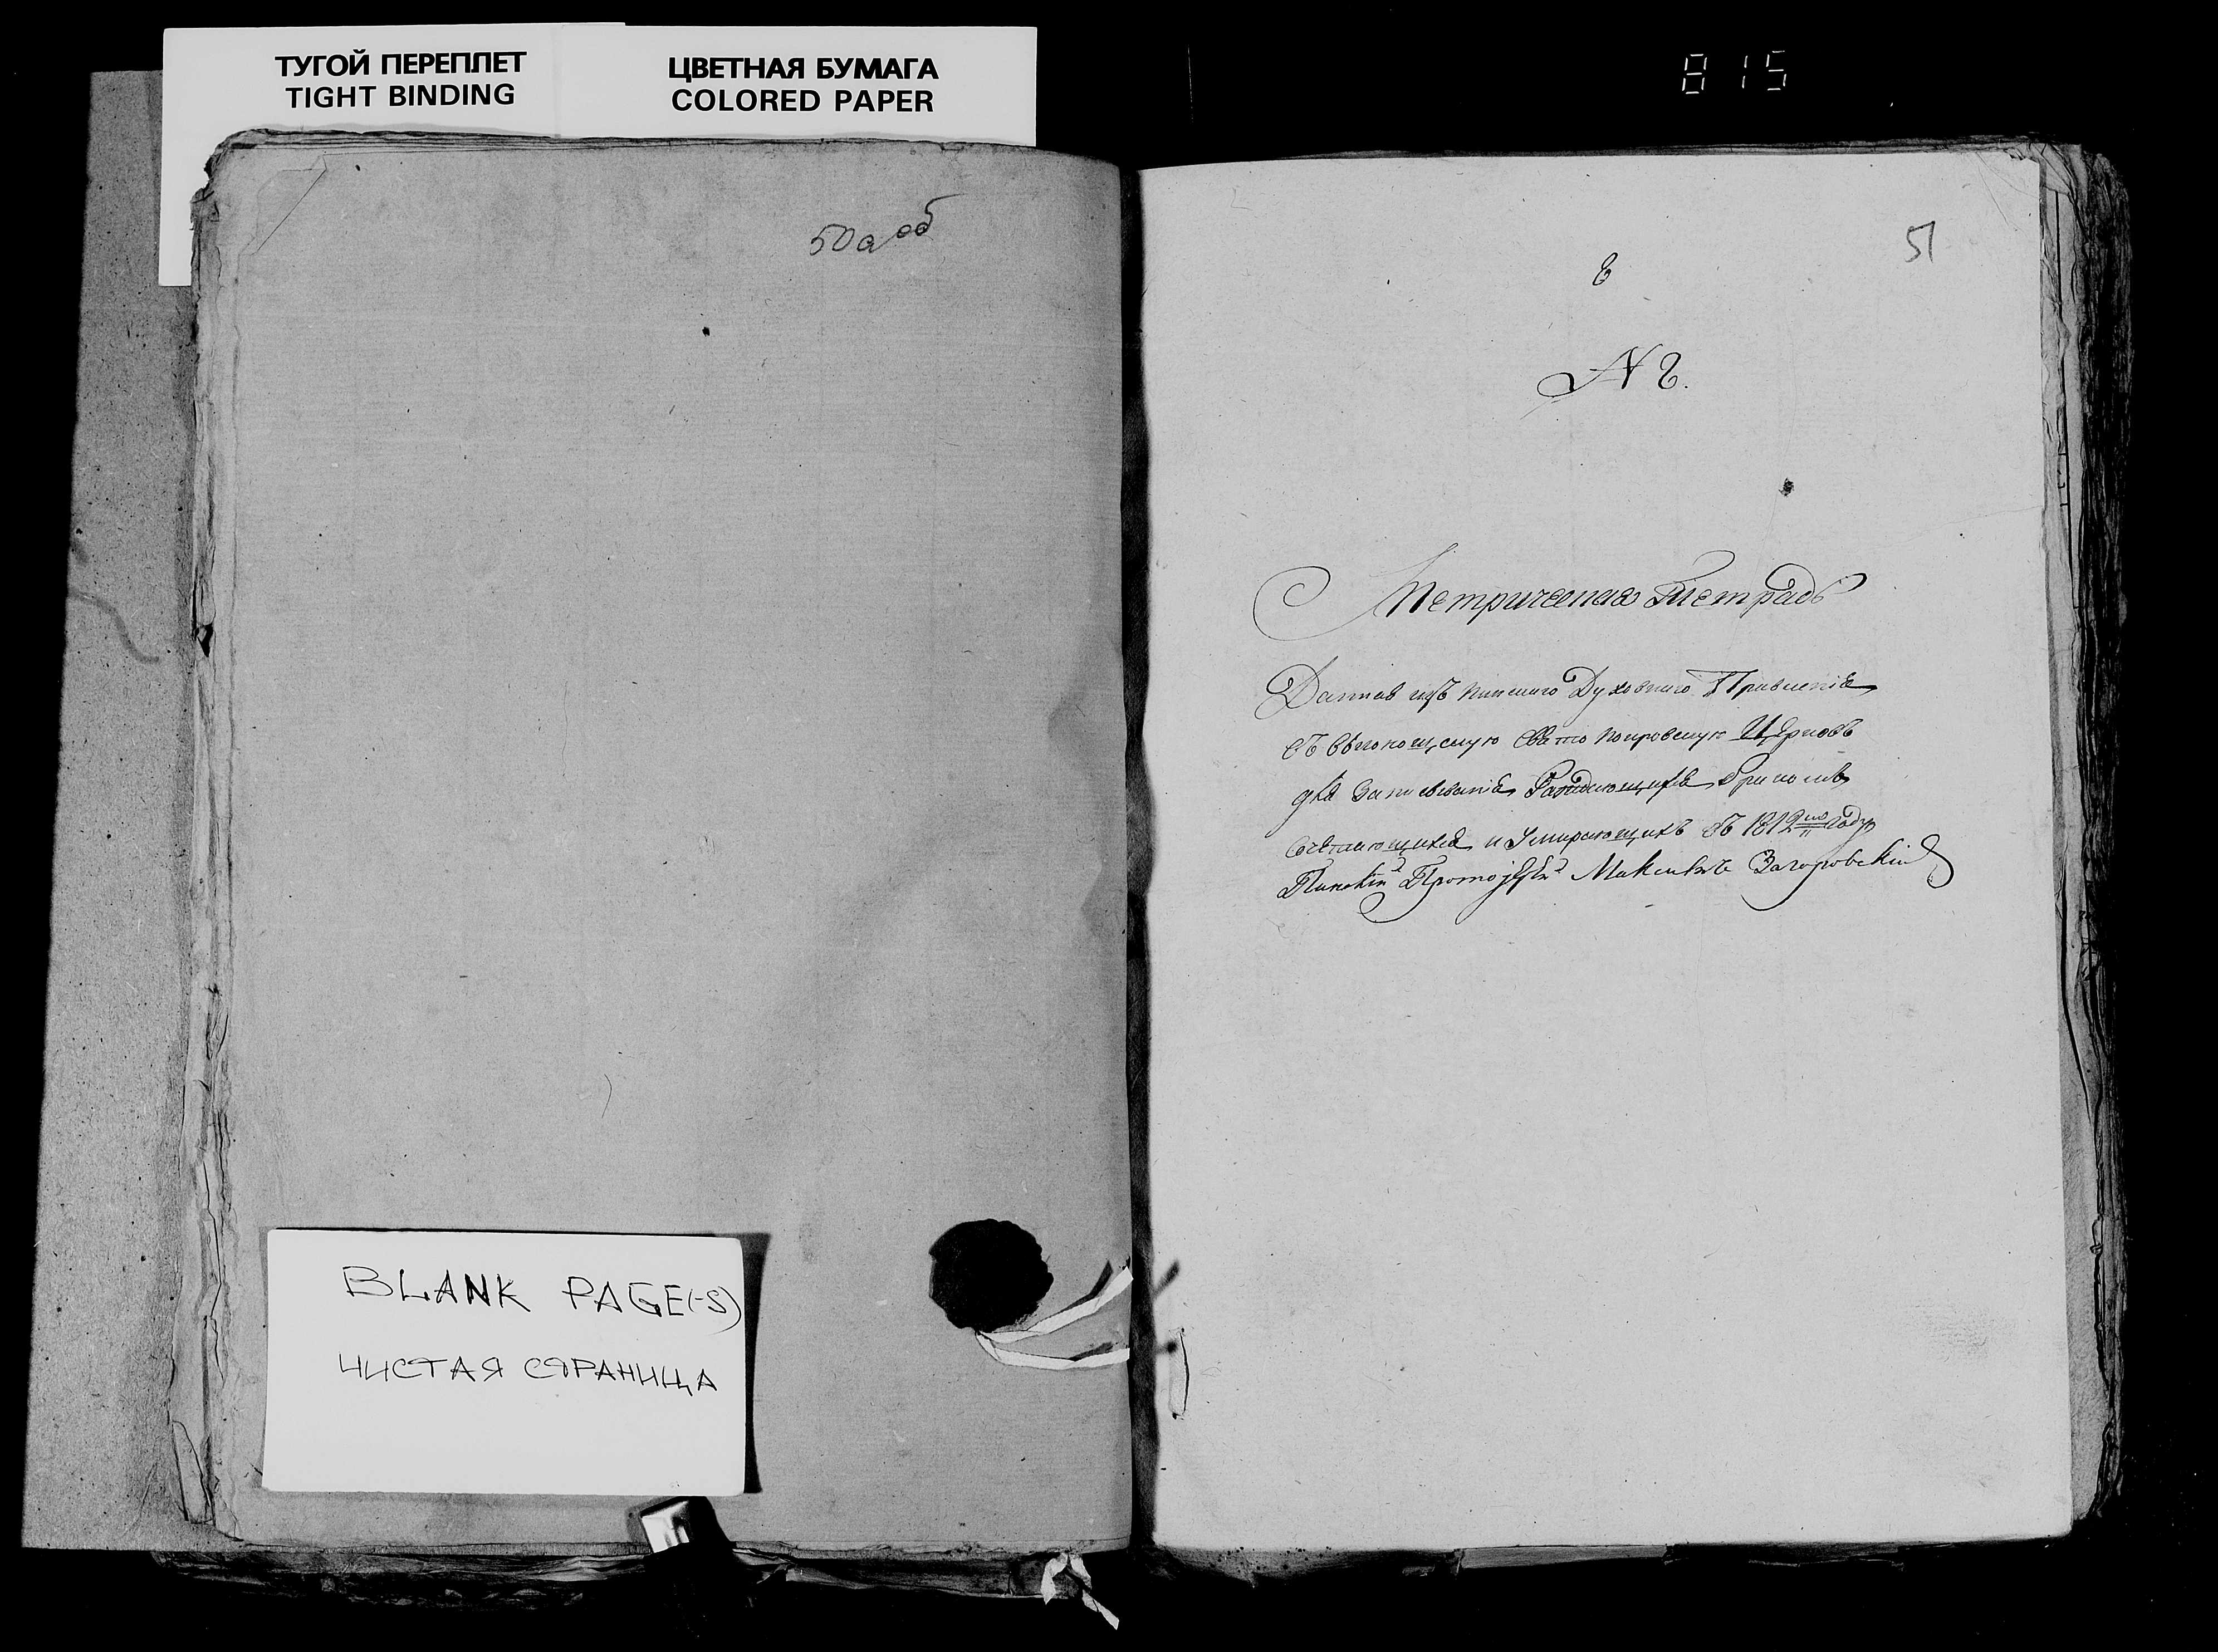 ТУГОЙ ПЕРЕПЛЕТ
TIGHT BINDING
ЦВЕТНАЯ БУМАГА
COLORED PAPER
815
50а об
51
6
N 6.
Метрическая Тетрадь
Данная изъ пинскаго Духовнаго Правленія
въ свято покровскую Церковь
для записыванія Раждающихся
сочетающихся и Умирающихъ въ 1812 году
Пинскій Максимъ Загоровскій
BLANK PAGE(-S)
ЧИСТАЯ СТРАНИЦА